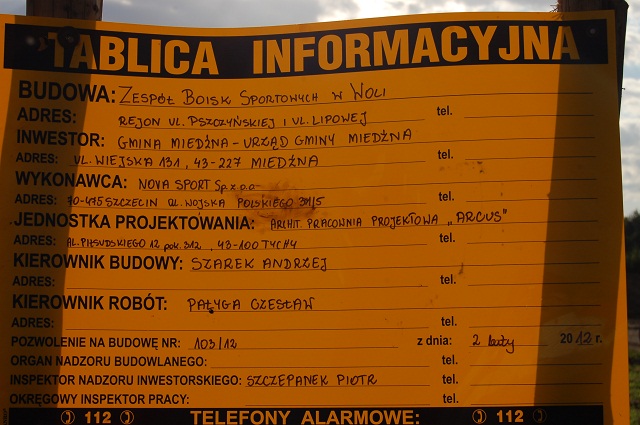 TABLICA INFORMACYJNA
BUDOWA: ZESPÓŁ BOISK SPORTOWYCH W WOLI
ADRES: REJON UL. PSZCZYŃSKIEJ I UL. LIPOWEJ tel.
INWESTOR: GMINA MIEDŹNA - URZĄD GMINY MIEDŹNA
ADRES: UL. WIEJSKA 131, 43-227 MIEDŹNA tel.
WYKONAWCA: NOVA SPORT Sp. z o.o.
ADRES: 70-475 SZCZECIN UL. WOJSKA POLSKIEGO tel.
JEDNOSTKA PROJEKTOWANIA: ARCHIT. PRACOWNIA PROJEKTOWA "ARCUS"
ADRES: AL. PIŁSUDSKIEGO 12 pok. 312, 43-100 TYCHY tel.
KIEROWNIK BUDOWY: SZAREK ANDRZEJ
ADRES: tel.
KIEROWNIK ROBÓT: PAŁYGA CZESŁAW
ADRES: tel.
POZWOLENIE NA BUDOWĘ NR: 103/12 z dnia: 2 luty 2012 r.
ORGAN NADZORU BUDOWLANEGO: tel.
INSPEKTOR NADZORU INWESTORSKIEGO: SZCZEPANEK PIOTR tel.
OKRĘGOWY INSPEKTOR PRACY: tel.
112 TELEFONY ALARMOWE: 112